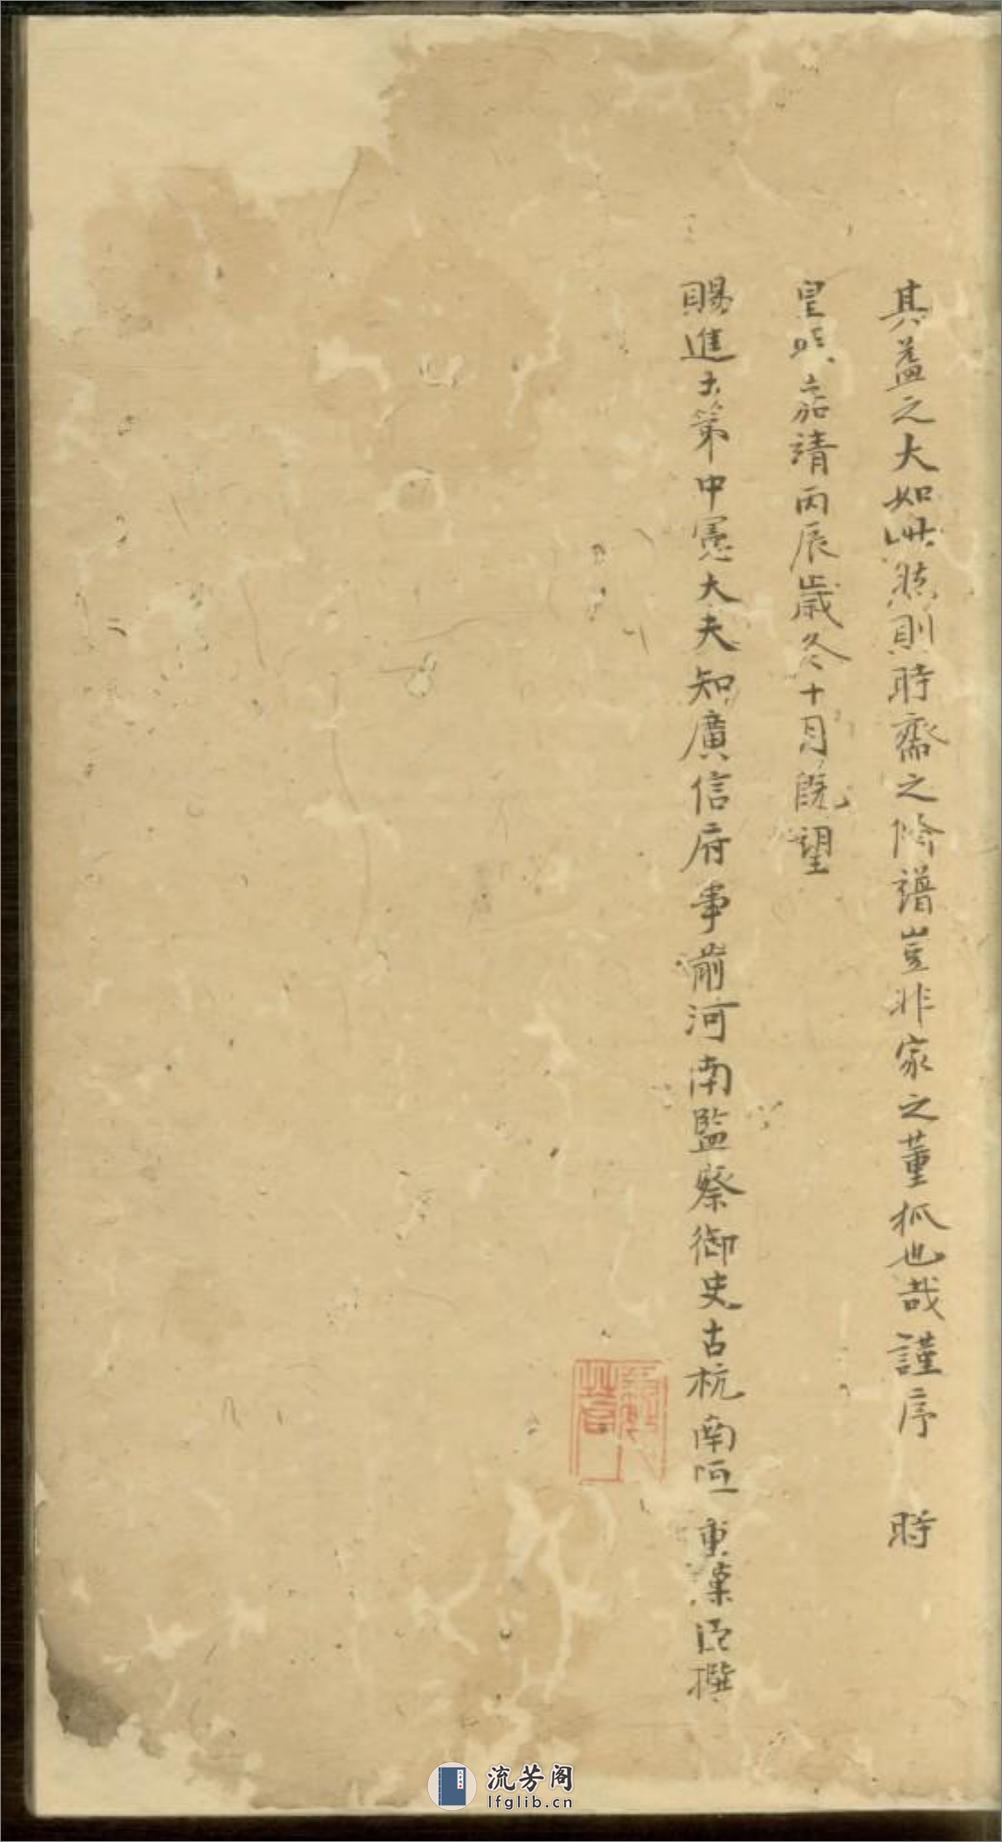 其益之大如此然則時齋之脩譜豈非家之董狐也哉謹序　時
皇明嘉靖丙辰歲冬十月既望
賜進士第中憲大夫知廣信府事前河南監察御史古杭南洹東漢臣撰
流芳阁
lfglib.cn